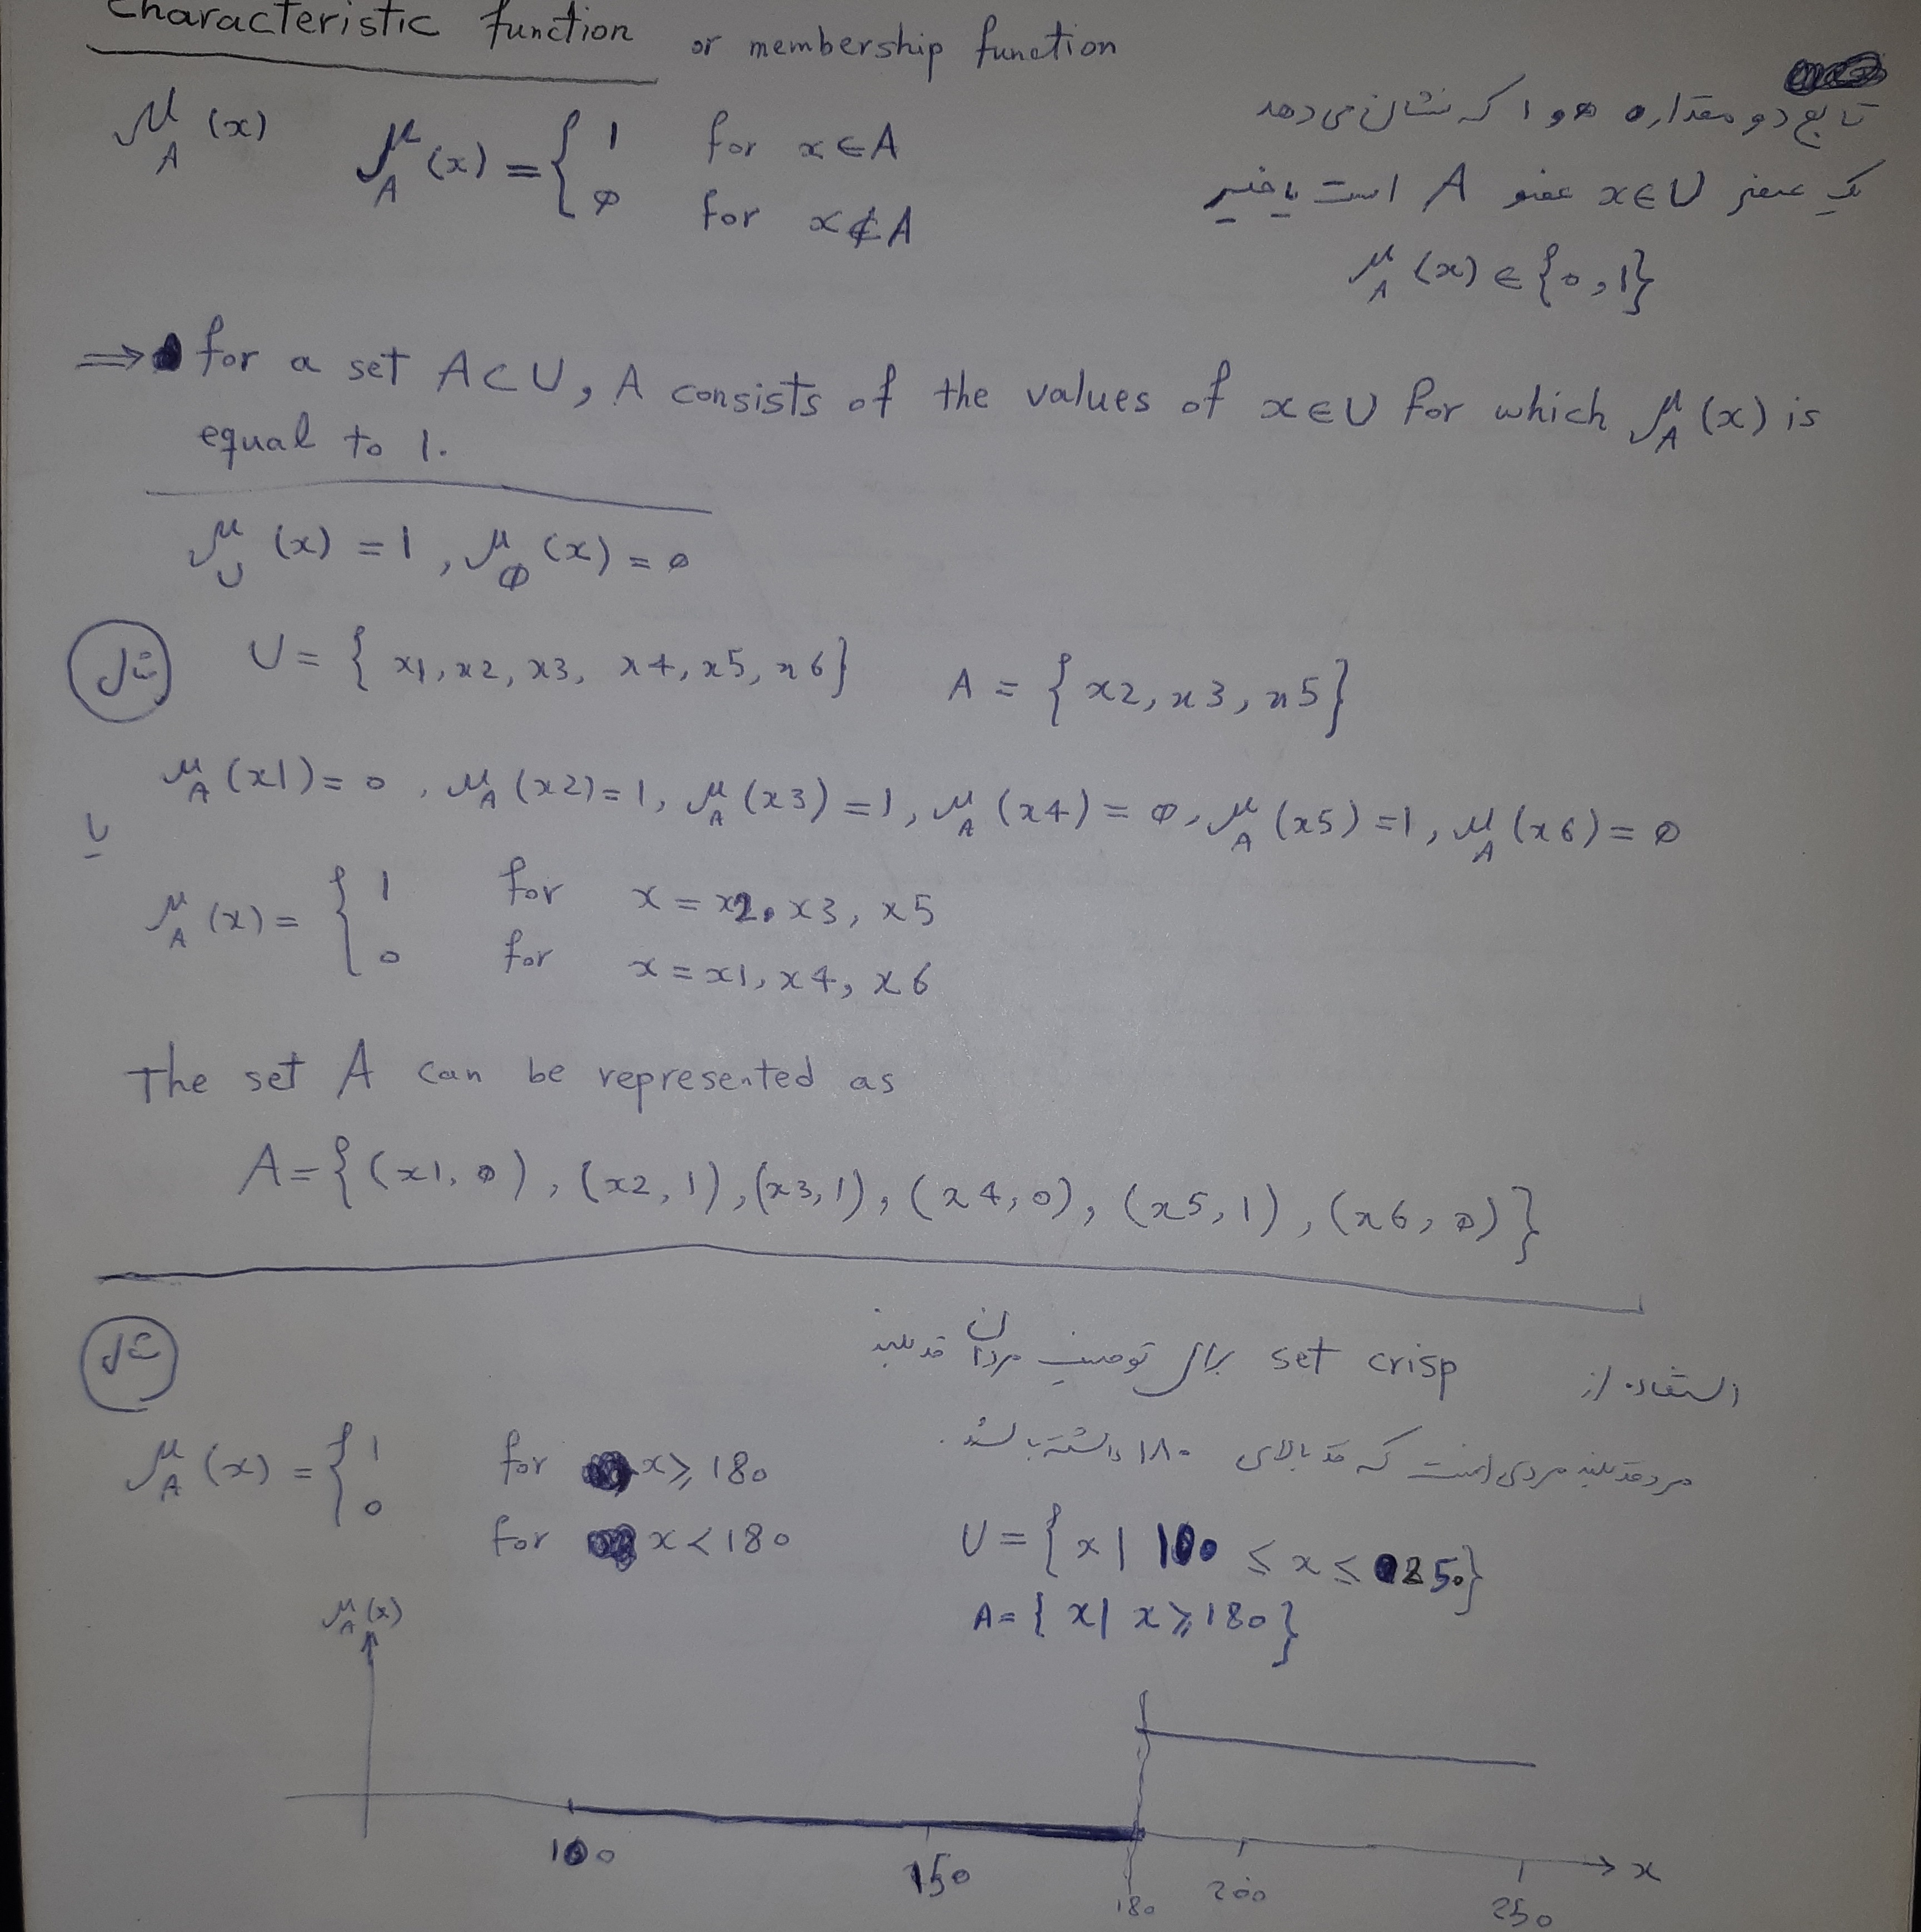 Characteristic function or membership function
μ_A (x)
μ_A (x) = { 1 for x ∈ A
0 for x ∉ A
تابع دو مقداره ه و ا که نشان می دهد
یک عنصر x∈U عضو A است یا خیر
μ_A (x) ∈ {0,1}
⇒ for a set A⊂U, A consists of the values of x∈U for which μ_A (x) is
equal to 1.
μ_U (x) = 1, μ_∅ (x) = 0
مثال
U = { x1, x2, x3, x4, x5, x6} A = { x2, x3, x5}
μ_A (x1) = 0, μ_A (x2) = 1, μ_A (x3) = 1, μ_A (x4) = 0, μ_A (x5) = 1, μ_A (x6) = 0
یا
μ_A (x) = { 1 for x = x2, x3, x5
0 for x = x1, x4, x6
The set A can be represented as
A = { (x1, 0), (x2, 1), (x3, 1), (x4, 0), (x5, 1), (x6, 0) }
مثال
استفاده از set crisp برای توصیف مردان قد بلند
مرد قد بلند مردی است که قد بالای ۱۸۰ داشته باشد.
μ_A (x) = { 1 for x ⩾ 180
0 for x < 180
U = { x | 100 ≤ x ≤ 250}
A = { x | x ⩾ 180 }
μ_A (x)
100 150 180 200 250 x